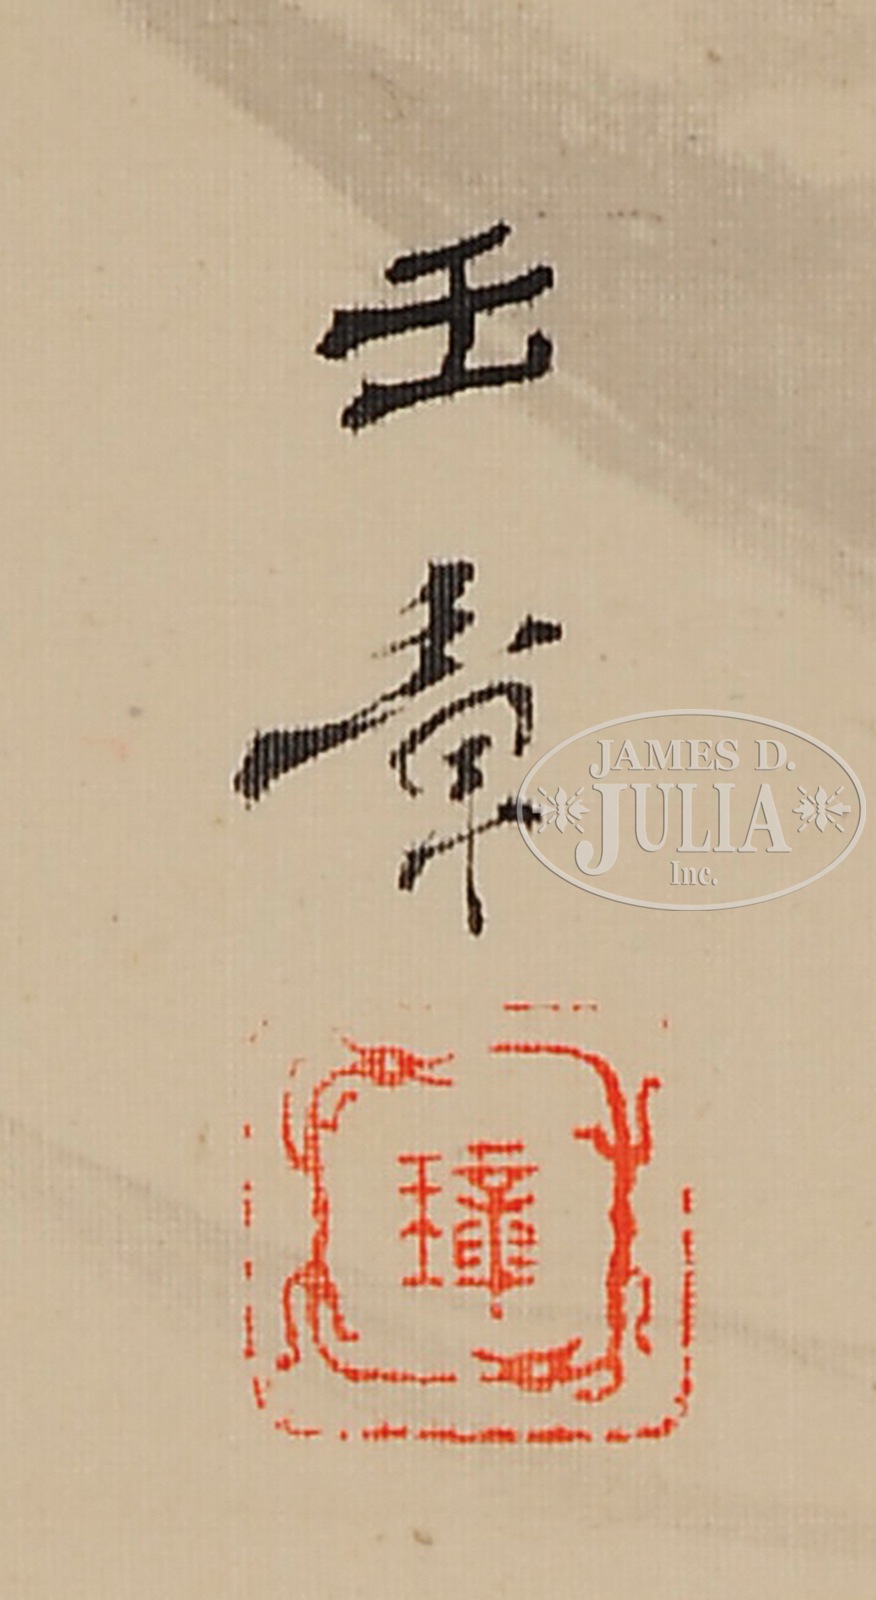 玉章
璋
JAMES D.
JULIA
Inc.